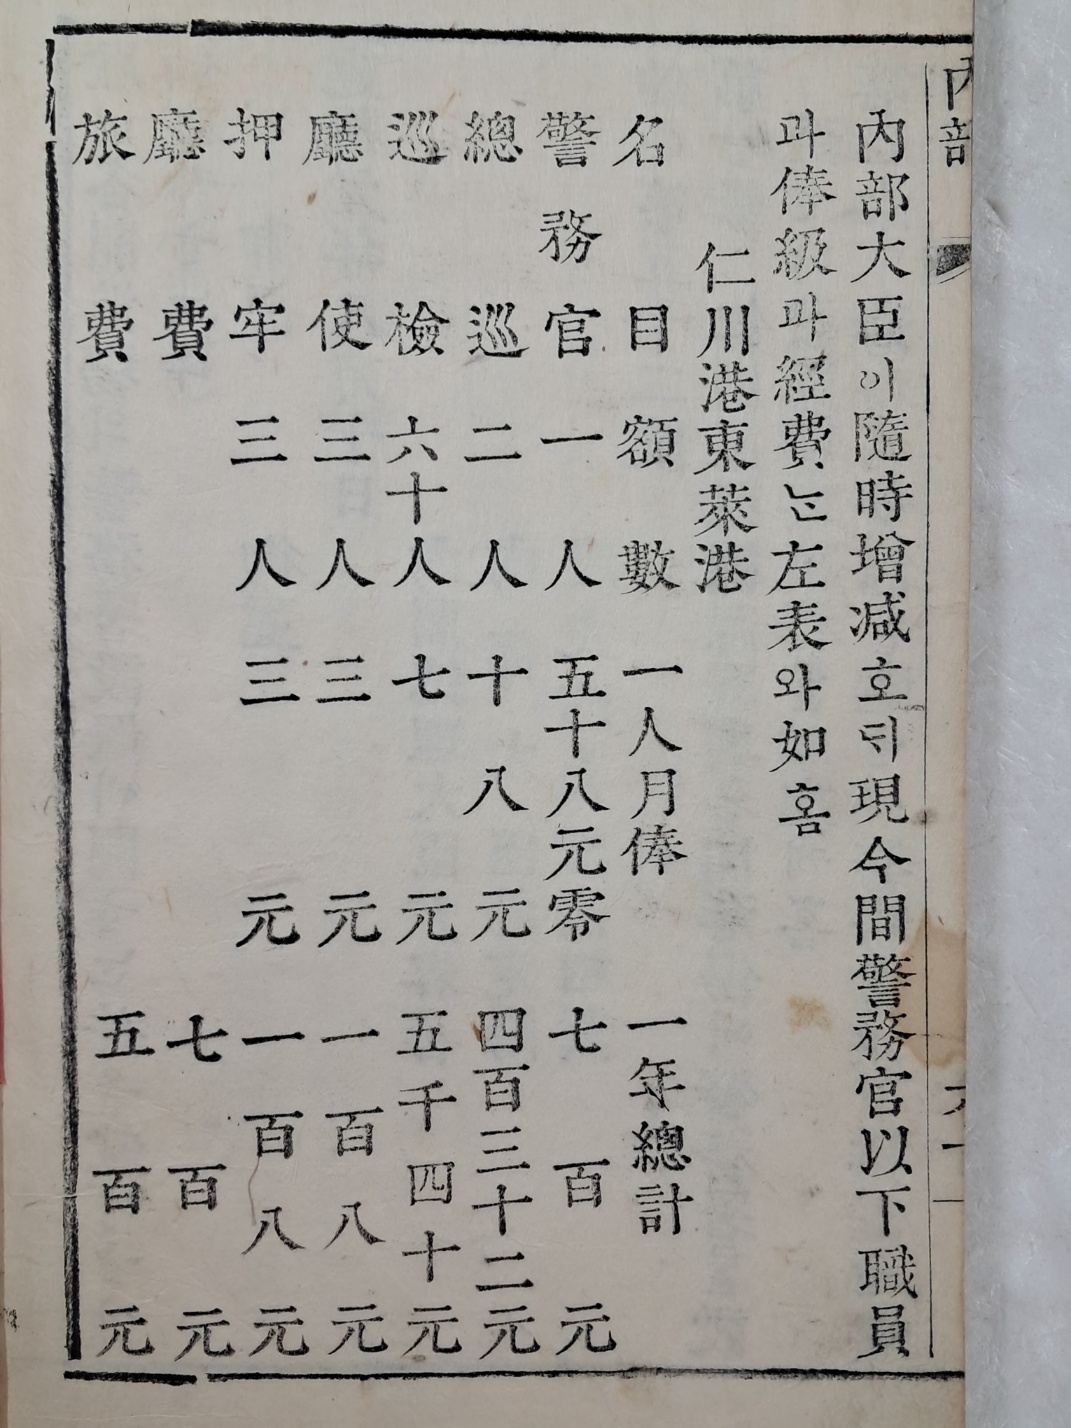 內部
內部大臣이隨時增減호ᄃᆡ現今間警務官以下職員
과俸級과經費ᄂᆞᆫ左表와如홈
仁川港東萊港
名目 額數 一人月俸 一年總計
警務官 一人 五十八元零 七百元
總巡 二人 十八元 四百三十二元
巡檢 六十人 七元 五千四十元
廳使 三人 三元 一百八元
押牢 三人 三元 一百八元
廳費 七百元
旅費 五百元